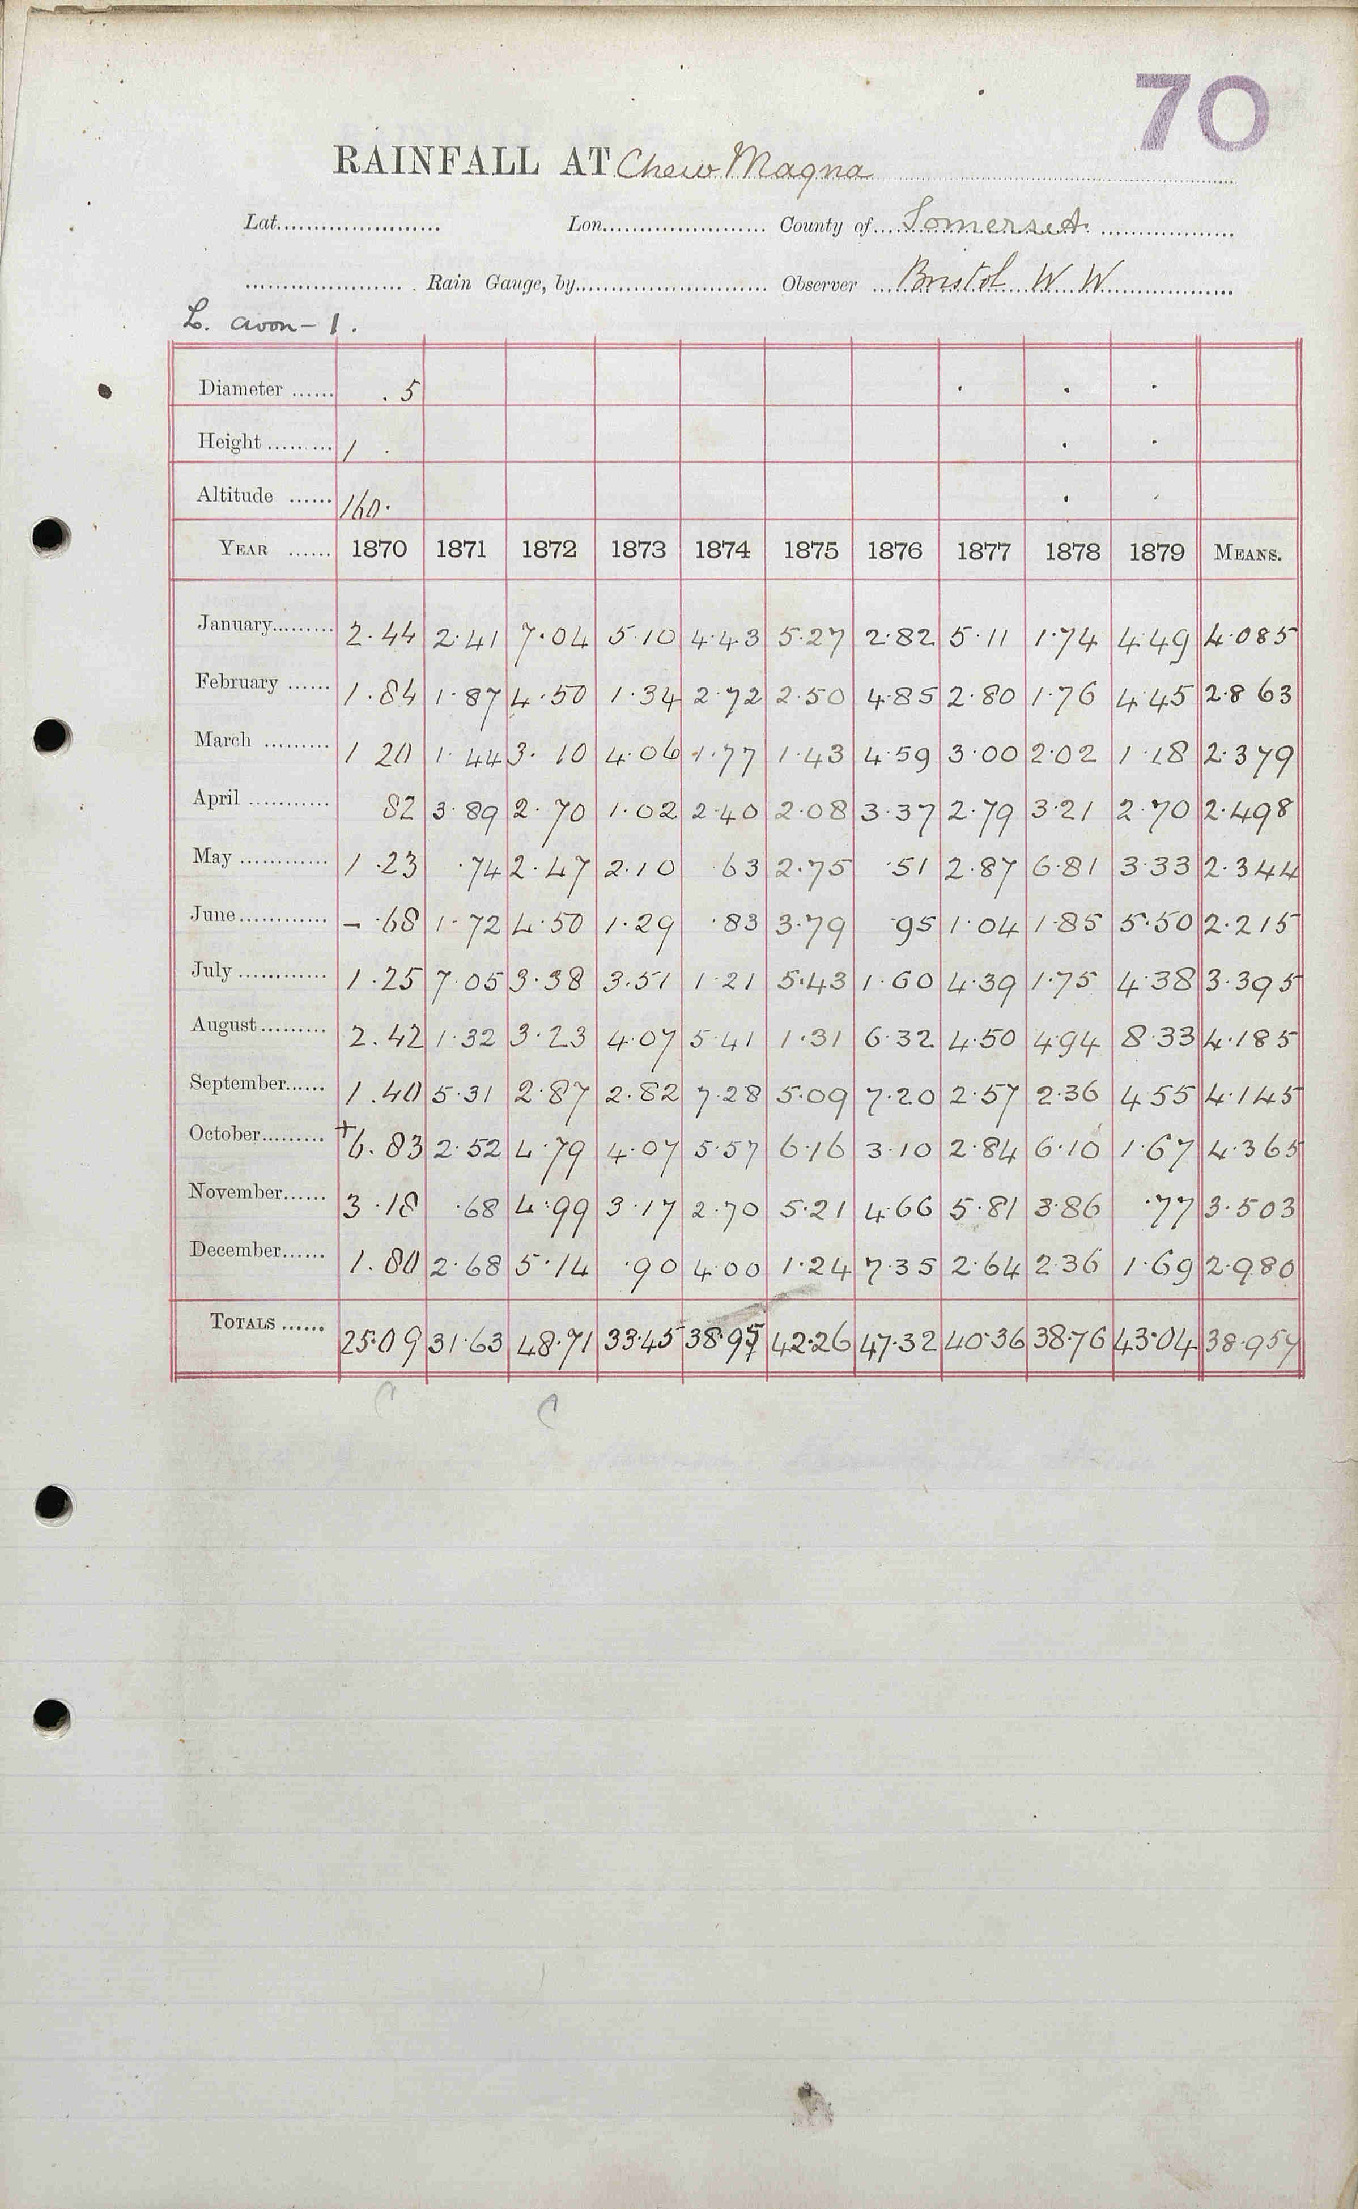 70
RAINFALL AT Chew Magna
Lat. Lon. County of Somerset
Rain Gauge, by Observer Bristol W W
L. Avon - 1.
Diameter ...... . 5
Height ......... 1 .
Altitude ...... 160.
YEAR ...... 1870 1871 1872 1873 1874 1875 1876 1877 1878 1879 MEANS.
January......... 2.44 2.41 7.04 5.10 4.43 5.27 2.82 5.11 1.74 4.49 4.085
February ...... 1.84 1.87 4.50 1.34 2.72 2.50 4.85 2.80 1.76 4.45 2.863
March ......... 1 20 1.44 3.10 4.06 1.77 1.43 4.59 3.00 2.02 1.18 2.379
April ............ 82 3.89 2.70 1.02 2.40 2.08 3.37 2.79 3.21 2.70 2.498
May ............ 1.23 .74 2.47 2.10 .63 2.75 .51 2.87 6.81 3.33 2.344
June............ - .68 1.72 4.50 1.29 .83 3.79 95 1.04 1.85 5.50 2.215
July ............ 1.25 7.05 3.38 3.51 1.21 5.43 1.60 4.39 1.75 4.38 3.395
August ......... 2.42 1.32 3.23 4.07 5.41 1.31 6.32 4.50 4.94 8.33 4.185
September...... 1.40 5.31 2.87 2.82 7.28 5.09 7.20 2.57 2.36 4.55 4.145
October......... +6.83 2.52 4.79 4.07 5.57 6.16 3.10 2.84 6.10 1.67 4.365
November...... 3.18 .68 4.99 3.17 2.70 5.21 4.66 5.81 3.86 .77 3.503
December...... 1.80 2.68 5.14 .90 4.00 1.24 7.35 2.64 2.36 1.69 2.980
TOTALS ...... 25.09 31.63 48.71 33.45 38.95 42.26 47.32 40.36 38.76 43.04 38.957